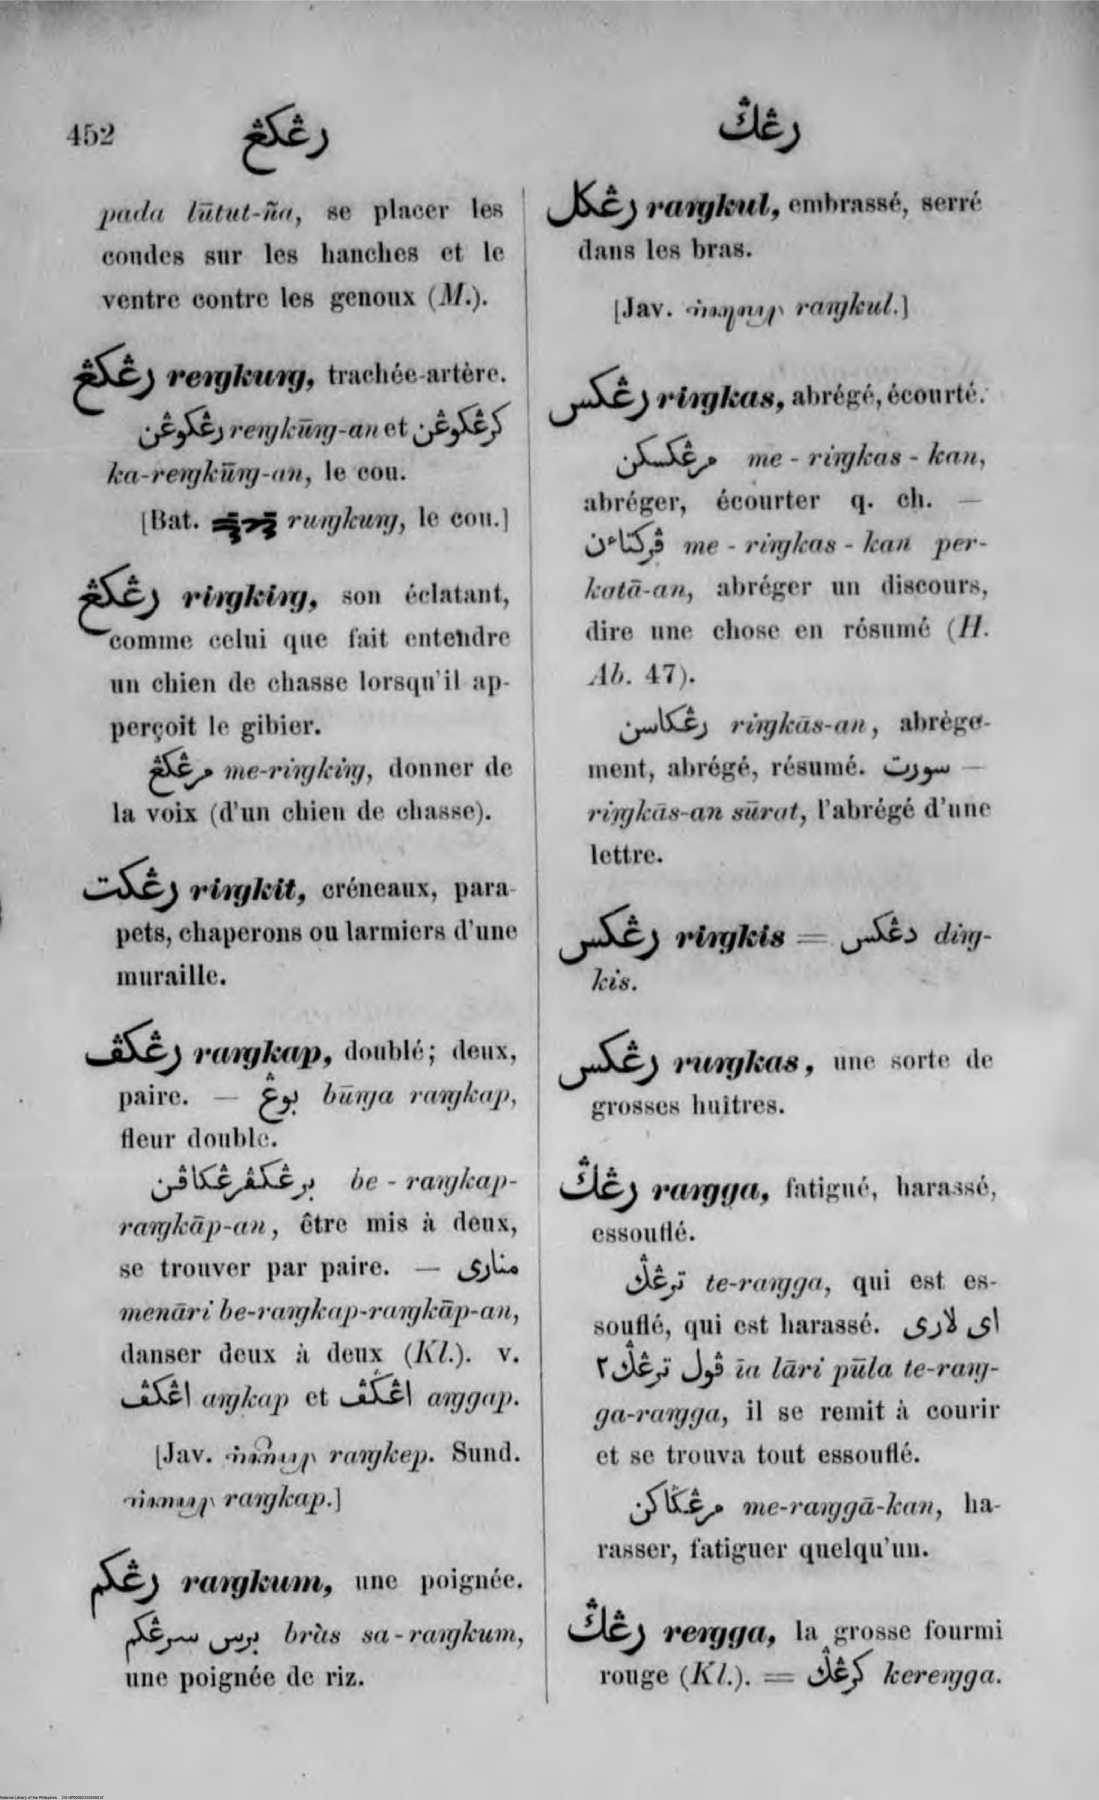 452 رڠكڠ رڠݢ
pada lūtut-ña, se placer les
coudes sur les hanches et le
ventre contre les genoux (M.).
رڠكڠ reŋkuŋ, trachée-artère.
رڠكوڠن reŋkūŋ-an et كرڠكوڠن
ka-reŋkūŋ-an, le cou.
[Bat. ruŋkuŋ, le cou.]
رڠكڠ riŋkiŋ, son éclatant,
comme celui que fait entendre
un chien de chasse lorsqu'il ap-
perçoit le gibier.
مرڠكڠ me-riŋkiŋ, donner de
la voix (d'un chien de chasse).
رڠكت riŋkit, créneaux, para-
pets, chaperons ou larmiers d'une
muraille.
رڠكڤ raŋkap, doublé; deux,
paire. — بوڠ būŋa raŋkap,
fleur double.
برڠكڤرڠكاڤن be-raŋkap-
raŋkāp-an, être mis à deux,
se trouver par paire. — مناری
menāri be-raŋkap-raŋkāp-an,
danser deux à deux (Kl.). v.
اڠكڤ aŋkap et اڠݢڤ aŋgap.
[Jav. raŋkep. Sund.
raŋkap.]
رڠكم raŋkum, une poignée.
برس سرڠكم bràs sa-raŋkum,
une poignée de riz.
رڠكل raŋkul, embrassé, serré
dans les bras.
[Jav. raŋkul.]
رڠكس riŋkas, abrégé, écourté.
مرڠكسكن me-riŋkas-kan,
abréger, écourter q. ch. —
ڤركتاءن me-riŋkas-kan per-
katā-an, abréger un discours,
dire une chose en résumé (H.
Ab. 47).
رڠكاسن riŋkās-an, abrége-
ment, abrégé, résumé. سورت —
riŋkās-an sūrat, l'abrégé d'une
lettre.
رڠكس riŋkis = دڠكس diŋ-
kis.
رڠكس ruŋkas, une sorte de
grosses huîtres.
رڠݢ raŋga, fatigué, harassé,
essouflé.
ترڠݢ te-raŋga, qui est es-
souflé, qui est harassé. ای لاری
ڤول ترڠݢ٢ īa lāri pūla te-raŋ-
ga-raŋga, il se remit à courir
et se trouva tout essouflé.
مرڠݢاكن me-raŋgā-kan, ha-
rasser, fatiguer quelqu'un.
رڠݢ reŋga, la grosse fourmi
rouge (Kl.). = كرڠݢ kereŋga.